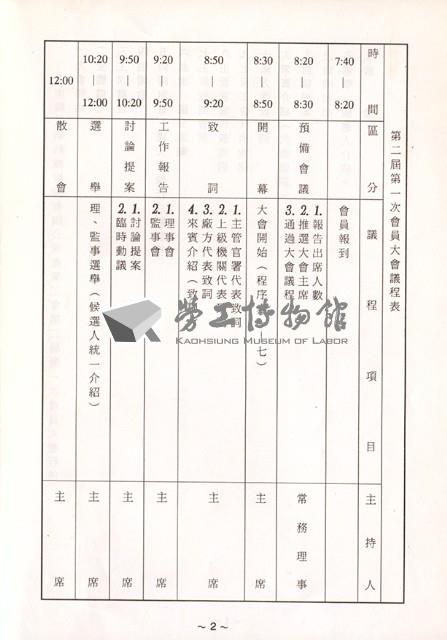 第二屆第一次會員大會議程表
時間 區分 議程項目 主持人
7:40 — 8:20 會員報到
8:20 — 8:30 預備會議 常務理事
1. 報告出席人數
2. 推選大會主席
3. 通過大會議程
8:30 — 8:50 開幕 主席
大會開始（程序 — 七）
8:50 — 9:20 致詞 主席
1. 主管官署代表致詞
2. 上級機關代表
3. 廠方代表致詞
4. 來賓介紹（致
9:20 — 9:50 工作報告 主席
1. 理事會
2. 監事會
9:50 — 10:20 討論提案 主席
1. 討論提案
2. 臨時動議
10:20 — 12:00 選舉 主席
理、監事選舉（候選人統一介紹）
12:00 散會 主席
勞工博物館
KAOHSIUNG MUSEUM OF LABOR
~ 2 ~